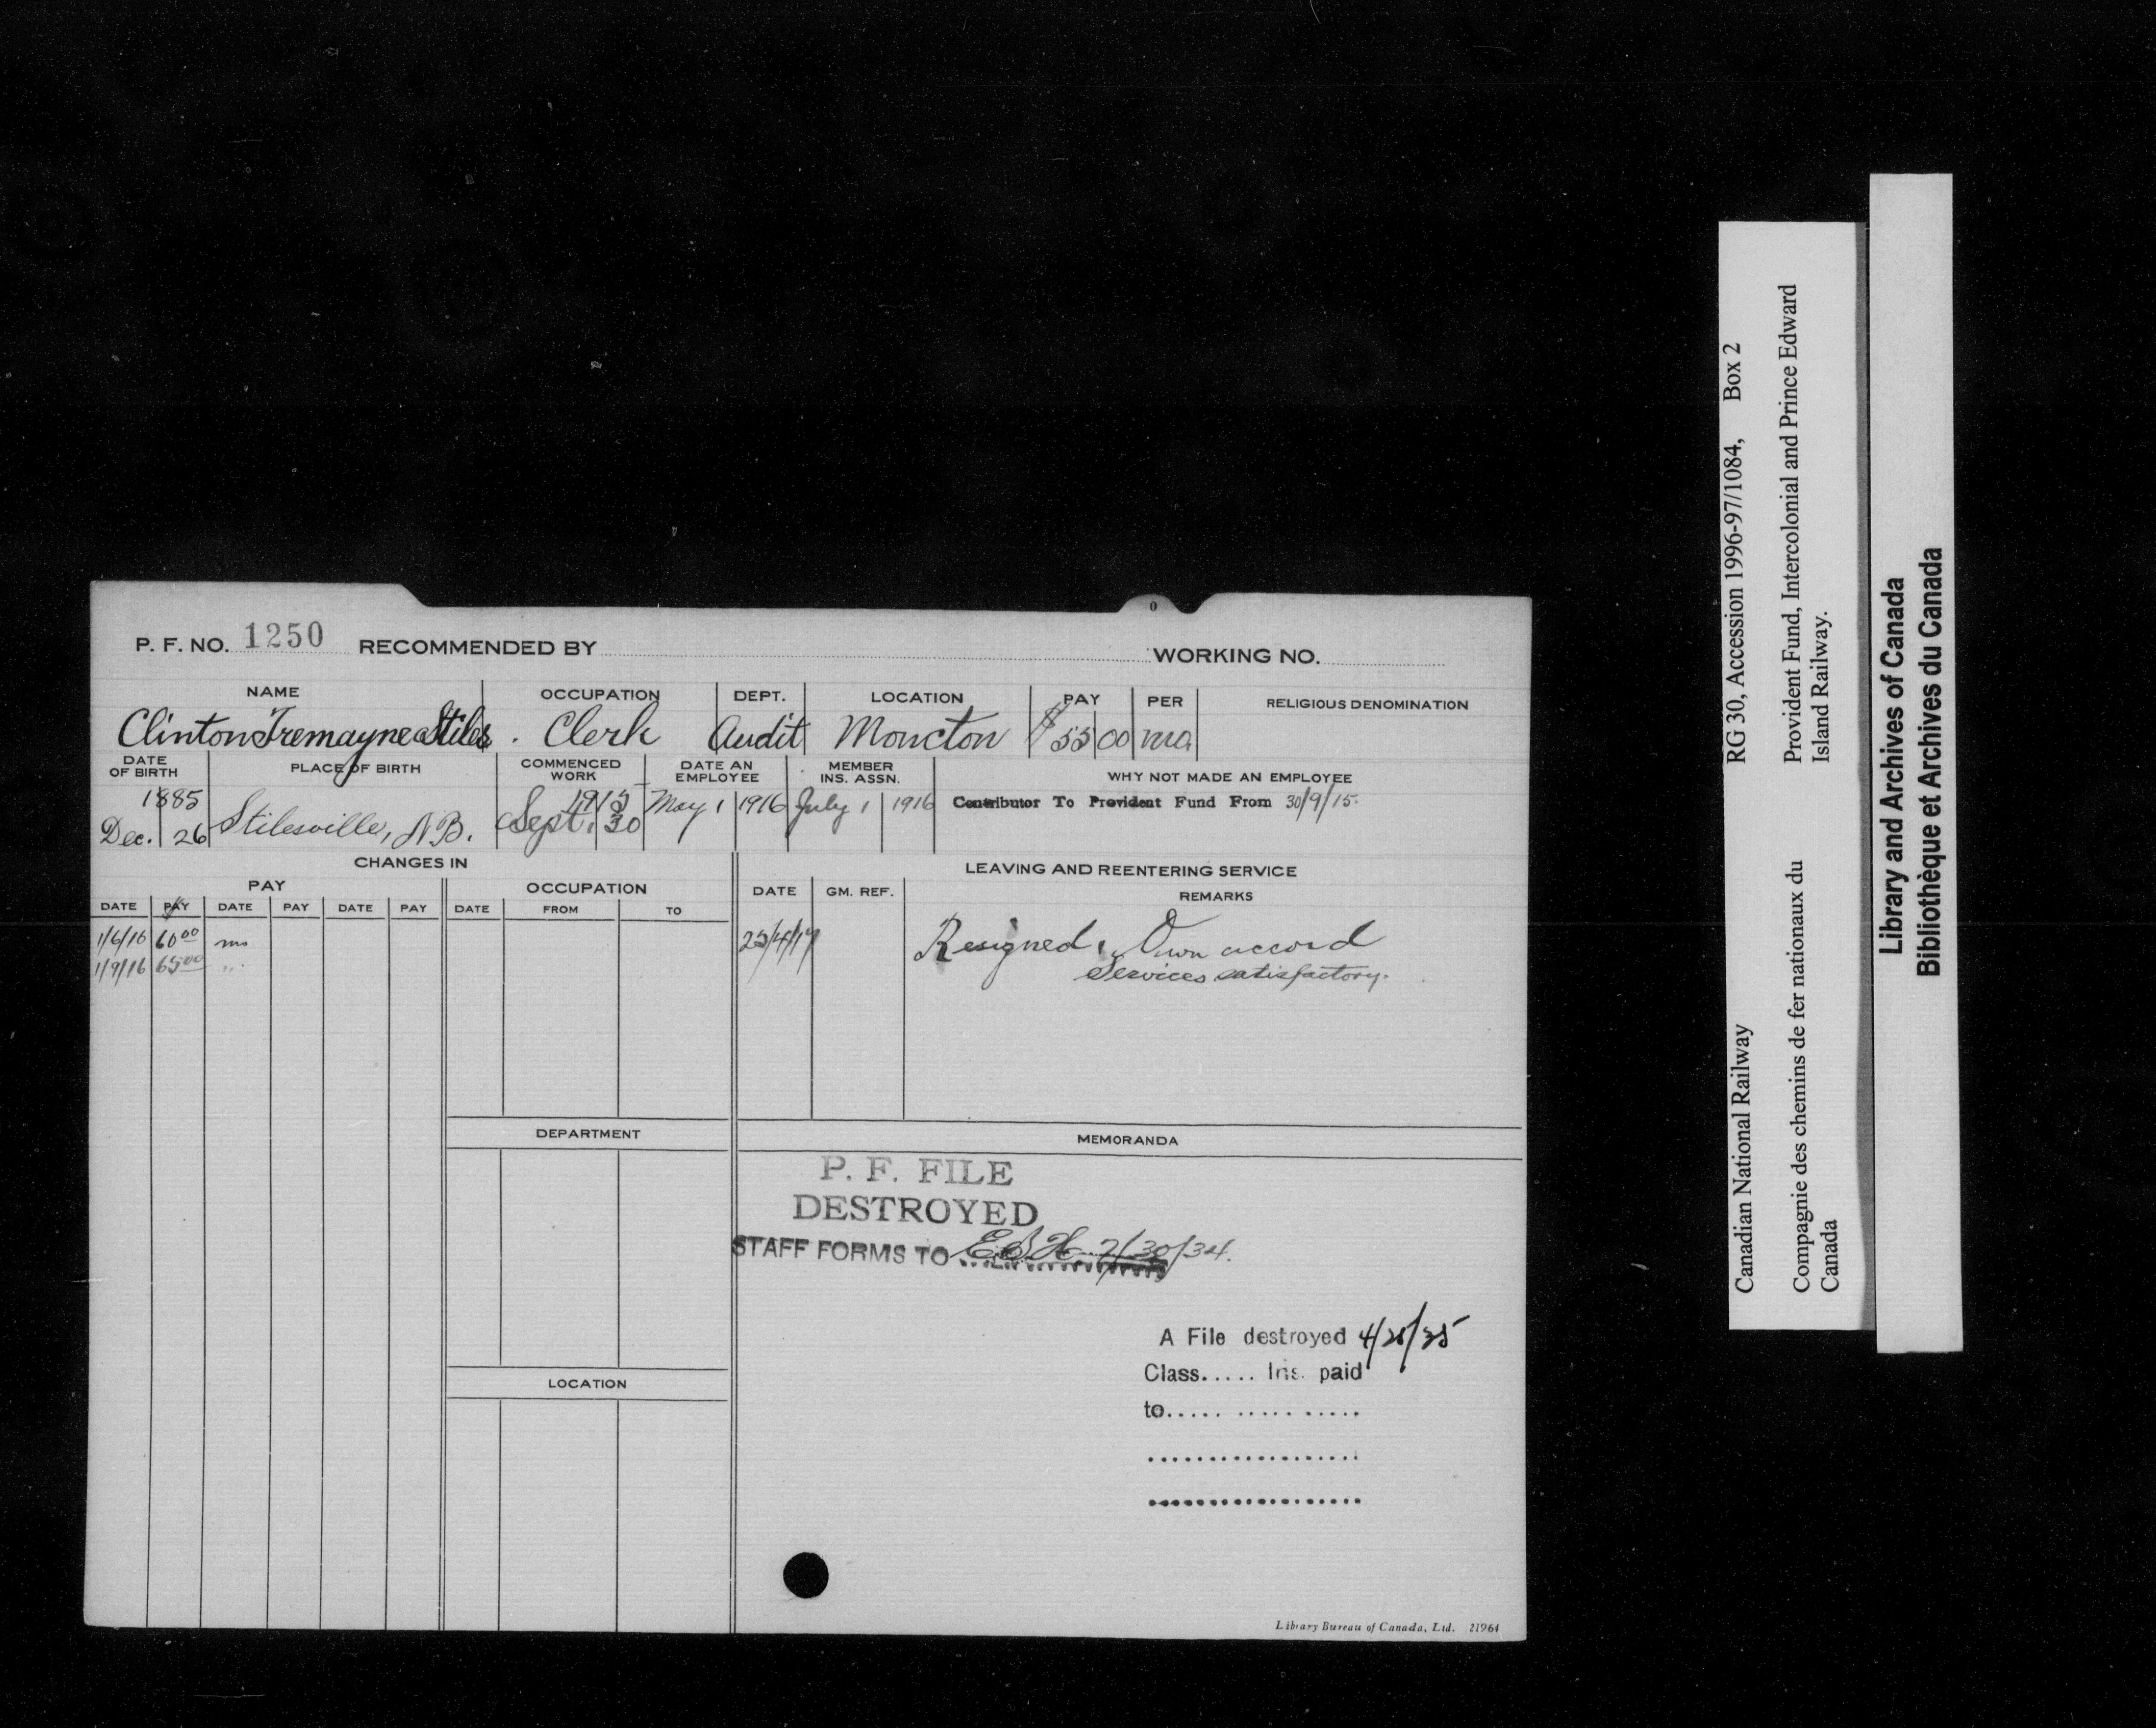 P. F. NO. 1250 RECOMMENDED BY WORKING NO.
0
NAME OCCUPATION DEPT. LOCATION PAY PER RELIGIOUS DENOMINATION
Clinton Tremayne Stiles. Clerk Audit Moncton $55 00 mo
DATE OF BIRTH PLACE OF BIRTH COMMENCED WORK DATE AN EMPLOYEE MEMBER INS. ASSN. WHY NOT MADE AN EMPLOYEE
1885 Dec. 26 Stilesville, N.B. 1915 Sept. 30 May 1 1916 July 1 1916 Contributor To Provident Fund From 30/9/15.
CHANGES IN LEAVING AND REENTERING SERVICE
PAY OCCUPATION DATE GM. REF. REMARKS
DATE PAY DATE PAY DATE PAY DATE FROM TO
1/6/16 60 00 mo /4/17 Resigned, Own accord
1/9/16 65 00 " Services satisfactory.
DEPARTMENT MEMORANDA
P. F. FILE
DESTROYED
STAFF FORMS TO 7/30/34.
A File destroyed 4/
Class..... Ins. paid
to..... ..... .....
LOCATION
Library Bureau of Canada, Ltd. 21964
Canadian National Railway RG 30, Accession 1996-97/1084, Box 2
Compagnie des chemins de fer nationaux du Canada Provident Fund, Intercolonial and Prince Edward Island Railway.
Library and Archives of Canada
Bibliothèque et Archives du Canada